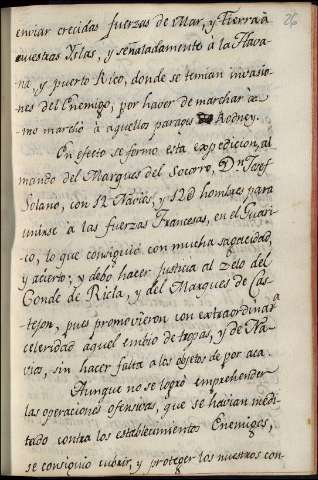 26
enviar crecidas fuerzas de Mar, y Tierra à
nuestras Yslas, y señaladamente à la Hava-
na, y puerto Rico, donde se temian invasio-
nes del Enemigo, por haver de marchar co-
mo marchò à aquellos parages Rodney.
En efecto se formò esta expedicion, al
mando del Marques del Socorro, Dn. Josef
Solano, con 12 Navios, y 12 D hombres para
unirse à las fuerzas Francesas, en el Guari-
co, lo que consiguiò con mucha sagacidad,
y acierto; y debo hacer justicia al zelo del
Conde de Ricla, y del Marques de Cas-
tejon, pues promovieron con extraordinara.
celeridad aquel embio de tropas, y de Na-
vios, sin hacer falta à los objetos de por acà.
Aunque no se logrò emprehender
las operaciones ofensivas, que se havian medi-
tado contra los establecimientos Enemigos,
se consiguiò cubrir, y proteger los nuestros con-